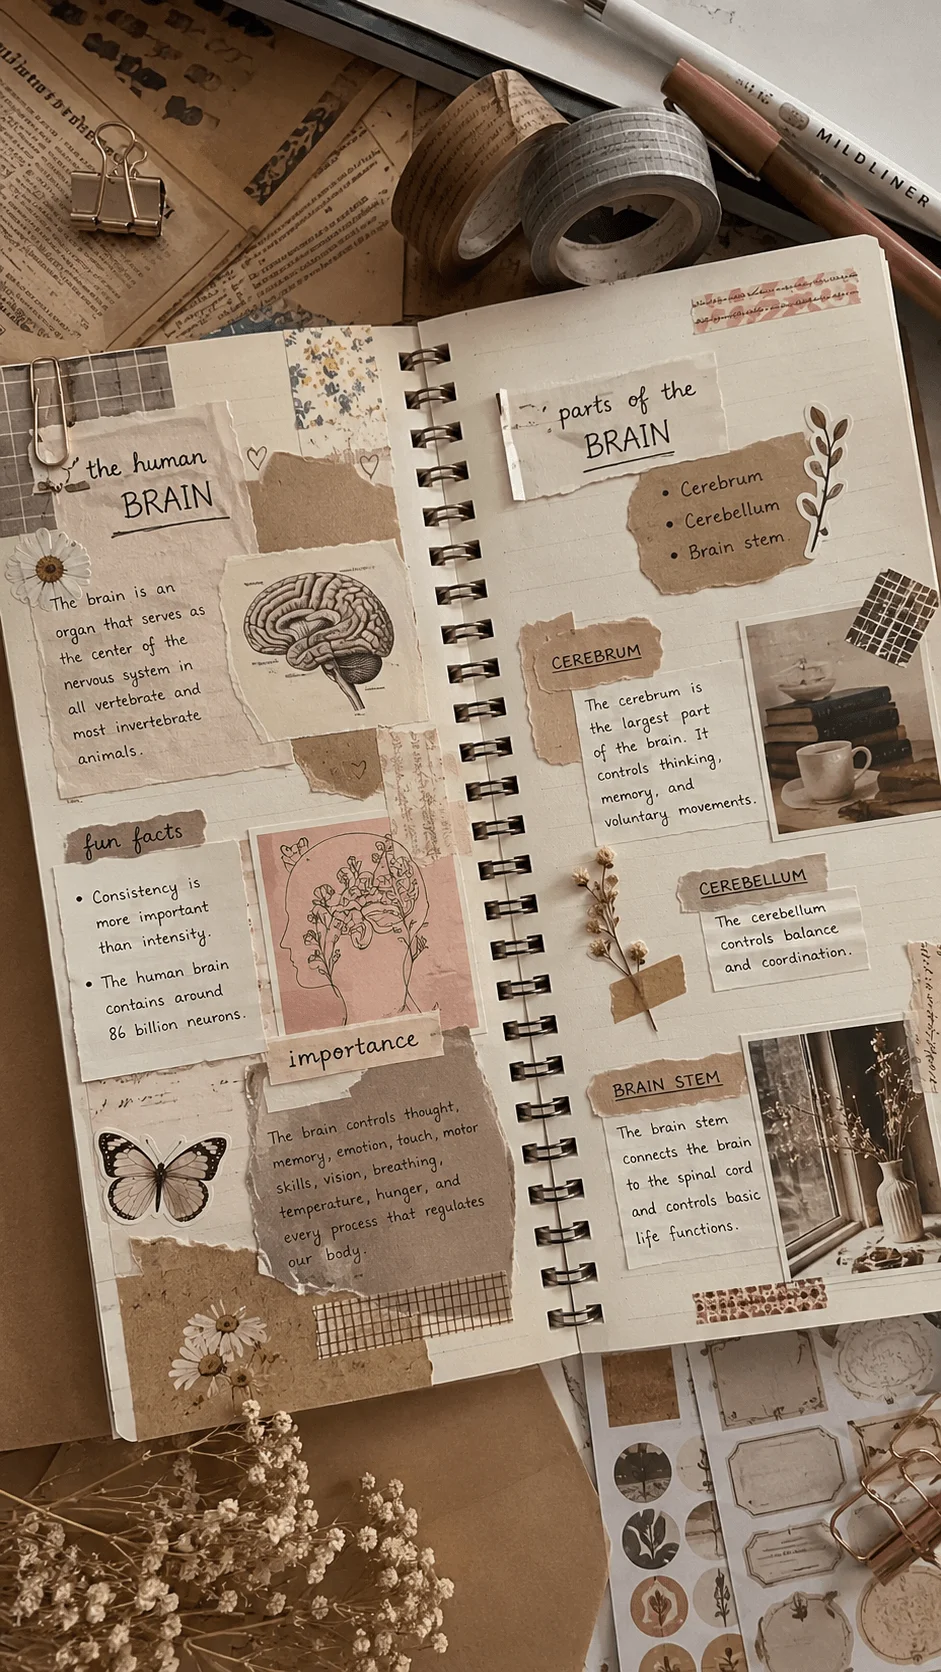 MILDLINER
the human
BRAIN
The brain is an
organ that serves as
the center of the
nervous system in
all vertebrate and
most invertebrate
animals.
fun facts
• Consistency is
more important
than intensity.
• The human brain
contains around
86 billion neurons.
importance
The brain controls thought,
memory, emotion, touch, motor
skills, vision, breathing,
temperature, hunger, and
every process that regulates
our body.
parts of the
BRAIN
• Cerebrum
• Cerebellum
• Brain stem
CEREBRUM
The cerebrum is
the largest part
of the brain. It
controls thinking,
memory, and
voluntary movements.
CEREBELLUM
The cerebellum
controls balance
and coordination.
BRAIN STEM
The brain stem
connects the brain
to the spinal cord
and controls basic
life functions.